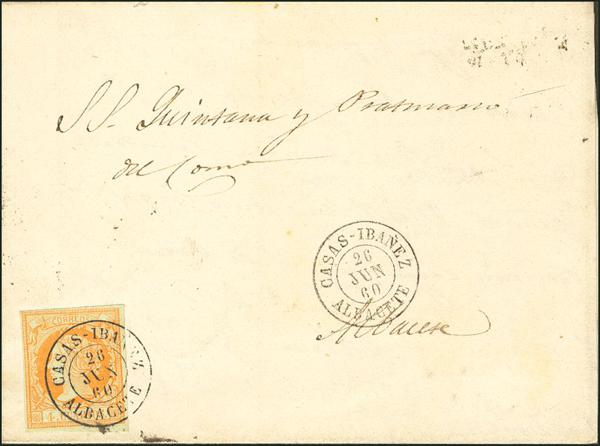 SS. Quintana y
del Com
CASAS-IBAÑEZ
26
JUN
60
ALBACETE
Albacete
CORREOS
CASAS-IBAÑEZ
26
JUN
60
ALBACETE